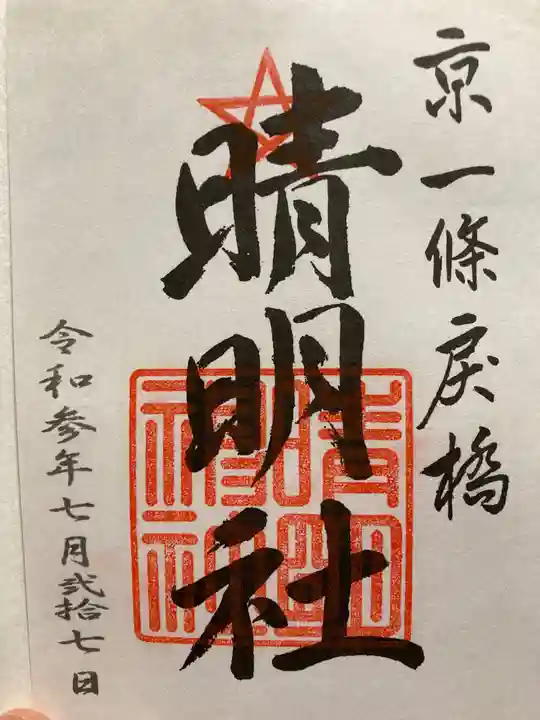 京一條戻橋
晴明社
令和参年七月弐拾七日